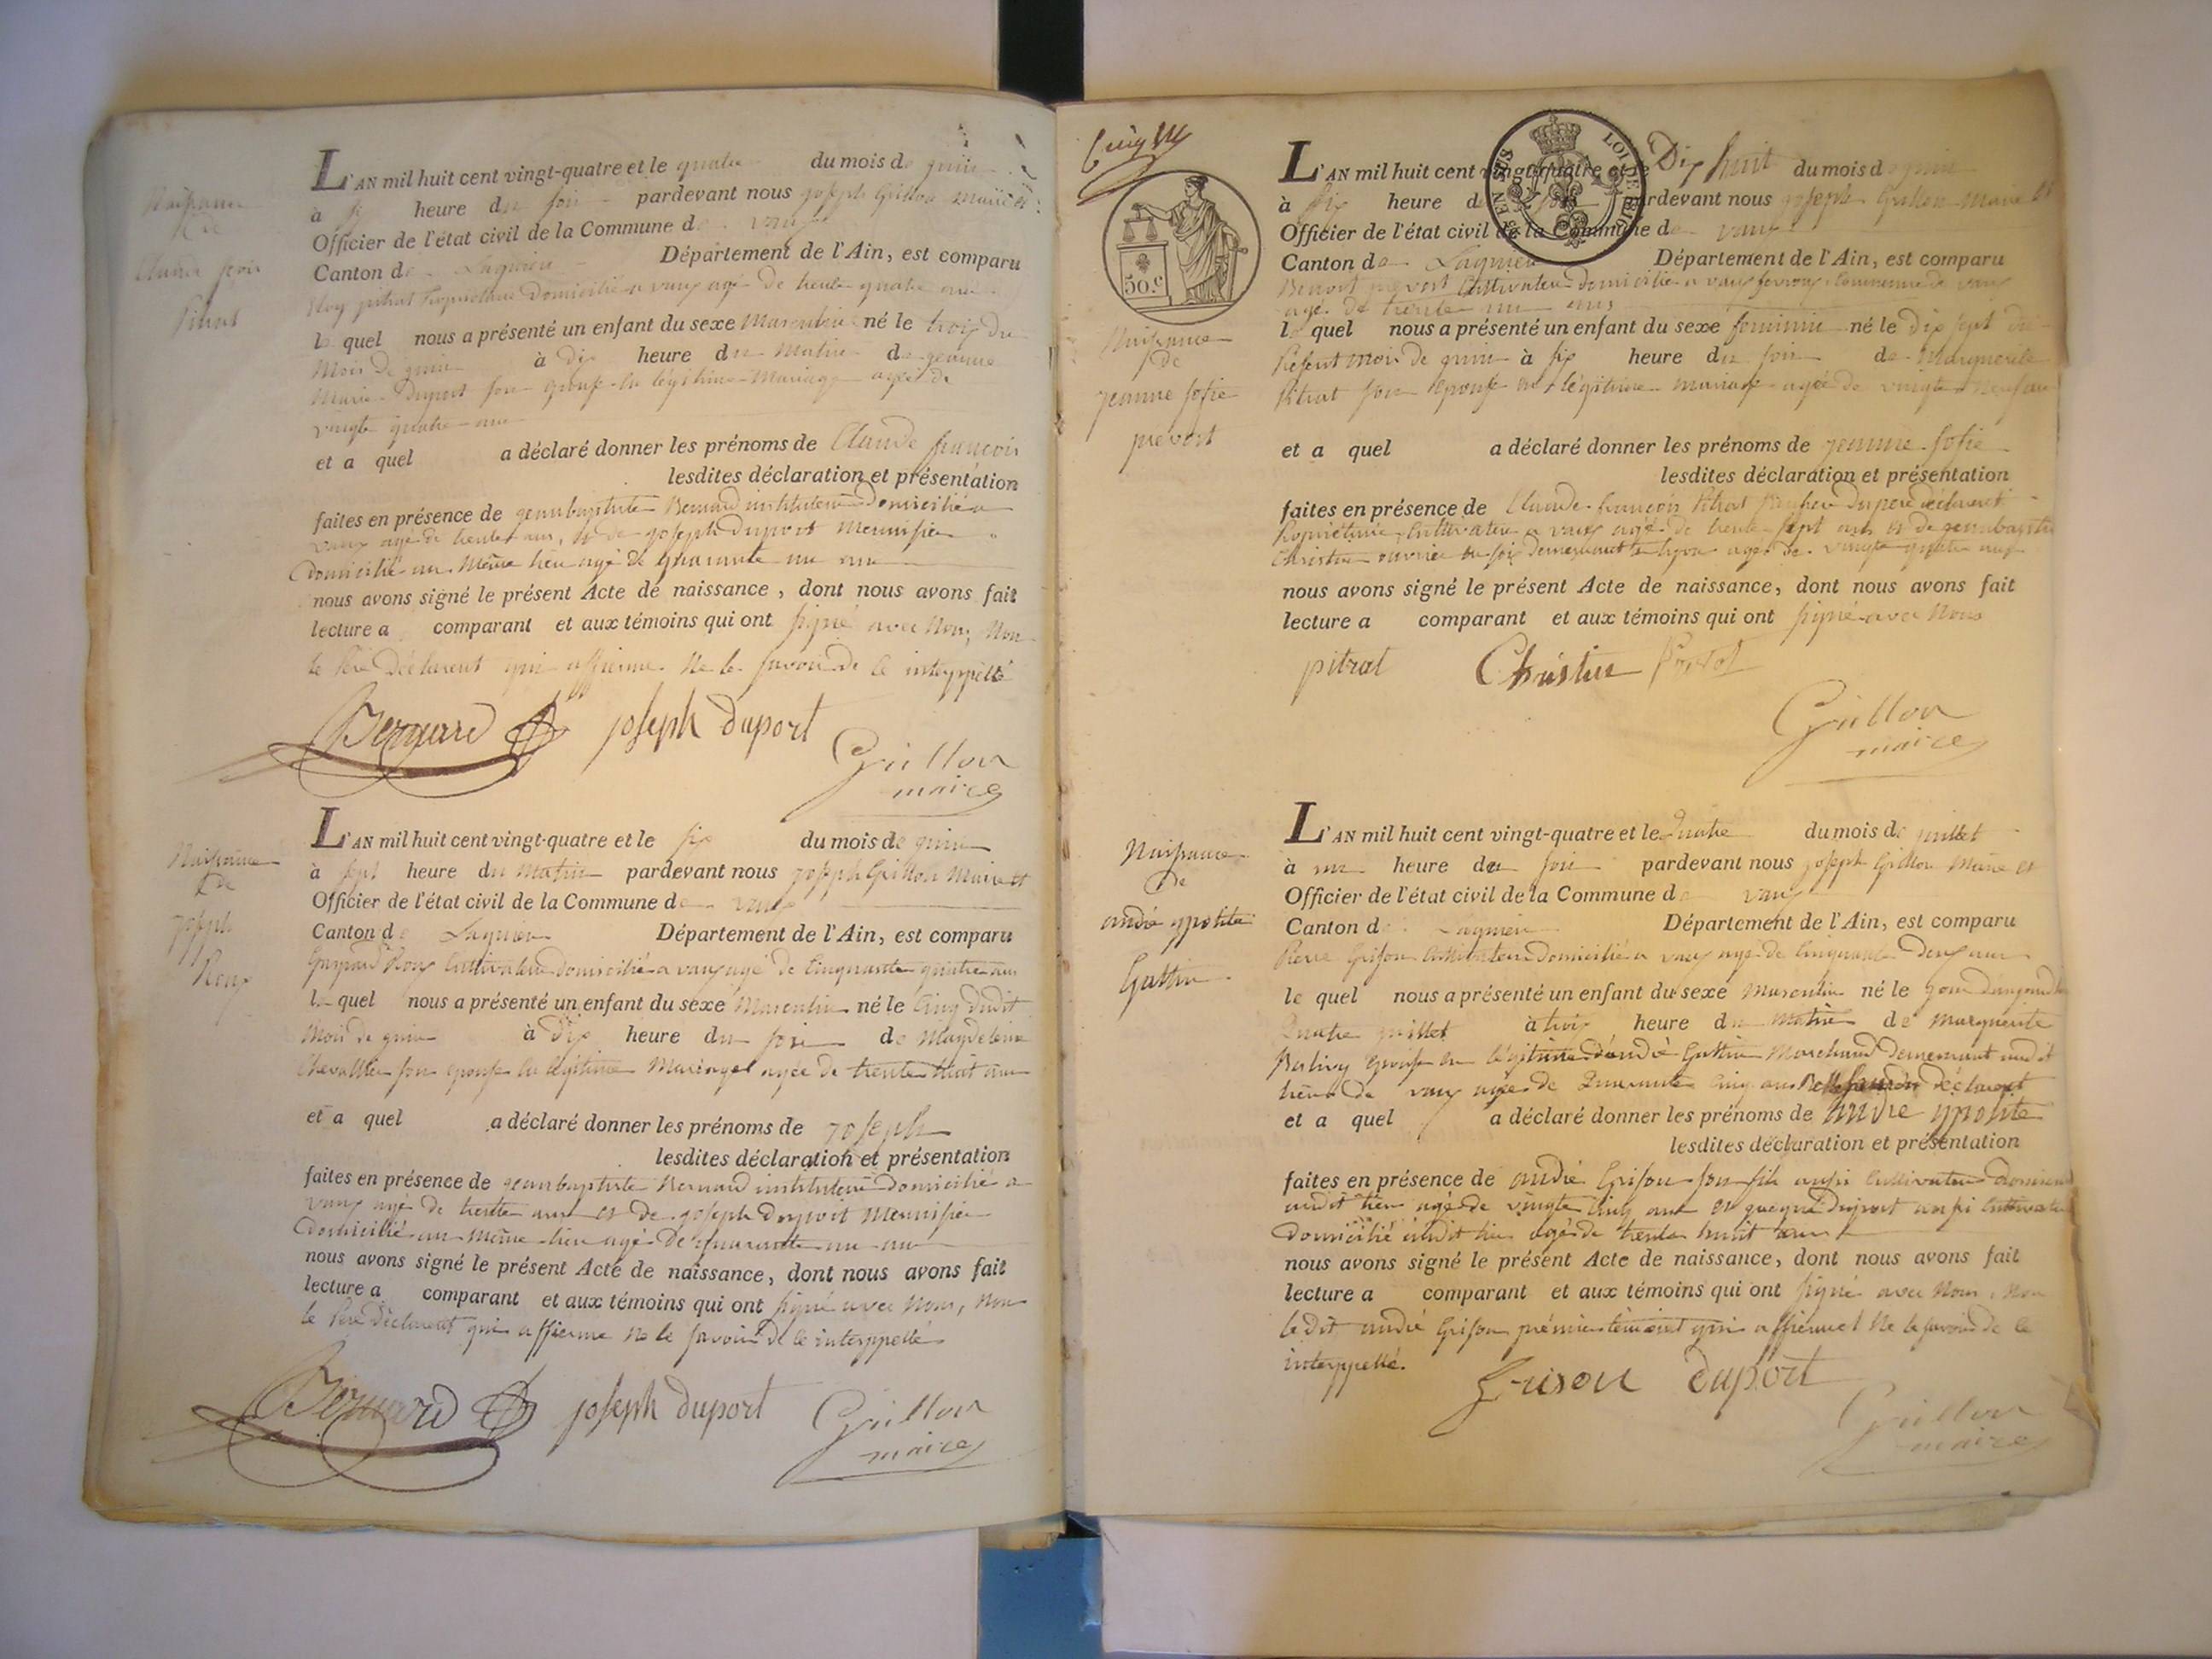 Naissance
de
Claude françois
Pitrat
L'AN mil huit cent vingt-quatre et le quatre du mois de guin
à six heure du soir pardevant nous joseph Grillon Maire et
Officier de l'état civil de la Commune de vaux
Canton de Lagnieu Département de l'Ain, est comparu
pitrat Propriétaire Domicilié a vaux agé De trente quatre ans
le quel nous a présenté un enfant du sexe Masculin né le trois du
Mois De guin à Dix heure du Matin de geanne
Marie Duport son epouse en légitime Mariage agée de
vingte quatre ans
et a quel a déclaré donner les prénoms de Claude françois
lesdites déclaration et présentation
faites en présence de geanbaptiste Bernard instituteur Domicilié a
vaux agé de trente ans, et de joseph Duport Menuisier
Domicilié au Même lieu agé De quarante un ans
nous avons signé le présent Acte de naissance, dont nous avons fait
lecture a comparant et aux témoins qui ont signé avec Nous, Non
le Père Déclarent qui affierme Ne le savoir De ce interppellé
Bernard joseph duport
Grillon
maire
Naissance
De
joseph
Roux
L'AN mil huit cent vingt-quatre et le six du mois de guin
à sept heure du Matin pardevant nous joseph Grillon Maire et
Officier de l'état civil de la Commune de vaux
Canton de Lagnieu Département de l'Ain, est comparu
Gaspard Roux Cultivateur Domicilié a vaux agé De Cinquante quatre ans
le quel nous a présenté un enfant du sexe Masculin né le Cinq dudit
Mois De guin à Dix heure du soir de Magdeleine
Chevallier son epouse en légitime Mariage agée De trente huit ans
et a quel a déclaré donner les prénoms de joseph
lesdites déclaration et présentation
faites en présence de geanbaptiste Bernard instituteur Domicilié a
vaux agé De trente ans et De joseph Duport Menuisier
Domicilié au Même lieu agé De quarante un ans
nous avons signé le présent Acte de naissance, dont nous avons fait
lecture a comparant et aux témoins qui ont signé avec Nous, Non
le Père Déclarent qui affierme Ne le savoir De ce interppellé
Bernard joseph duport
Grillon
maire
50.c
EN SUS LOI DE
Naissance
de
jeanne sofie
prevost
L'AN mil huit cent vingt-quatre et le Dix huit du mois de guin
à six heure du soir pardevant nous joseph Grillon Maire et
Officier de l'état civil de la Commune de vaux
Canton de Lagnieu Département de l'Ain, est comparu
Benoit prevost Cultivateur domicilié a vaux Commune de vaux
agé De trente un ans
le quel nous a présenté un enfant du sexe feminin né le Dix sept du
Présent mois De guin à six heure du soir de Marguerite
Pitrat son epouse en légitime mariage agée De vingte Neuf ans
et a quel a déclaré donner les prénoms de jeanne sofie
lesdites déclaration et présentation
faites en présence de Claude françois Pitrat Dupere déclarent
Propriétaire Cultivateur a vaux agé De trente sept ans et de geanbaptiste
Christin ouvrier en soie demeurant a lyon agé de vingte quatre ans
nous avons signé le présent Acte de naissance, dont nous avons fait
lecture a comparant et aux témoins qui ont signé avec Nous
pitrat Christin
Grillon
maire
Naissance
De
andré ypolite
Guttin
L'AN mil huit cent vingt-quatre et le Quatre du mois de juillet
à une heure du soir pardevant nous joseph Grillon Maire et
Officier de l'état civil de la Commune de vaux
Canton de Lagnieu Département de l'Ain, est comparu
Pierre Grison Cultivateur Domicilié a vaux agé De Cinquante Deux ans
le quel nous a présenté un enfant du sexe Masculin né le jour Daujourdhui
Quatre juillet à trois heure du Matin de Marguerite
epouse en légitime d'andré Guttin Marchand Demeurant audit
lieu De vaux agée De Quarante Cinq ans déclarent
et a quel a déclaré donner les prénoms de andre ypolite
lesdites déclaration et présentation
faites en présence de andré Grison son fils aussi Cultivateur Domicilié
audit lieu agé De vingte Cinq ans et Duport aussi Cultivateur
Domicilié audit lieu agé De trente huit ans
nous avons signé le présent Acte de naissance, dont nous avons fait
lecture a comparant et aux témoins qui ont signé avec Nous, Non
le Dit andré Grison prémier témoint qui affierme Ne le savoir De ce
interppellé.
Grison Duport
Grillon
maire